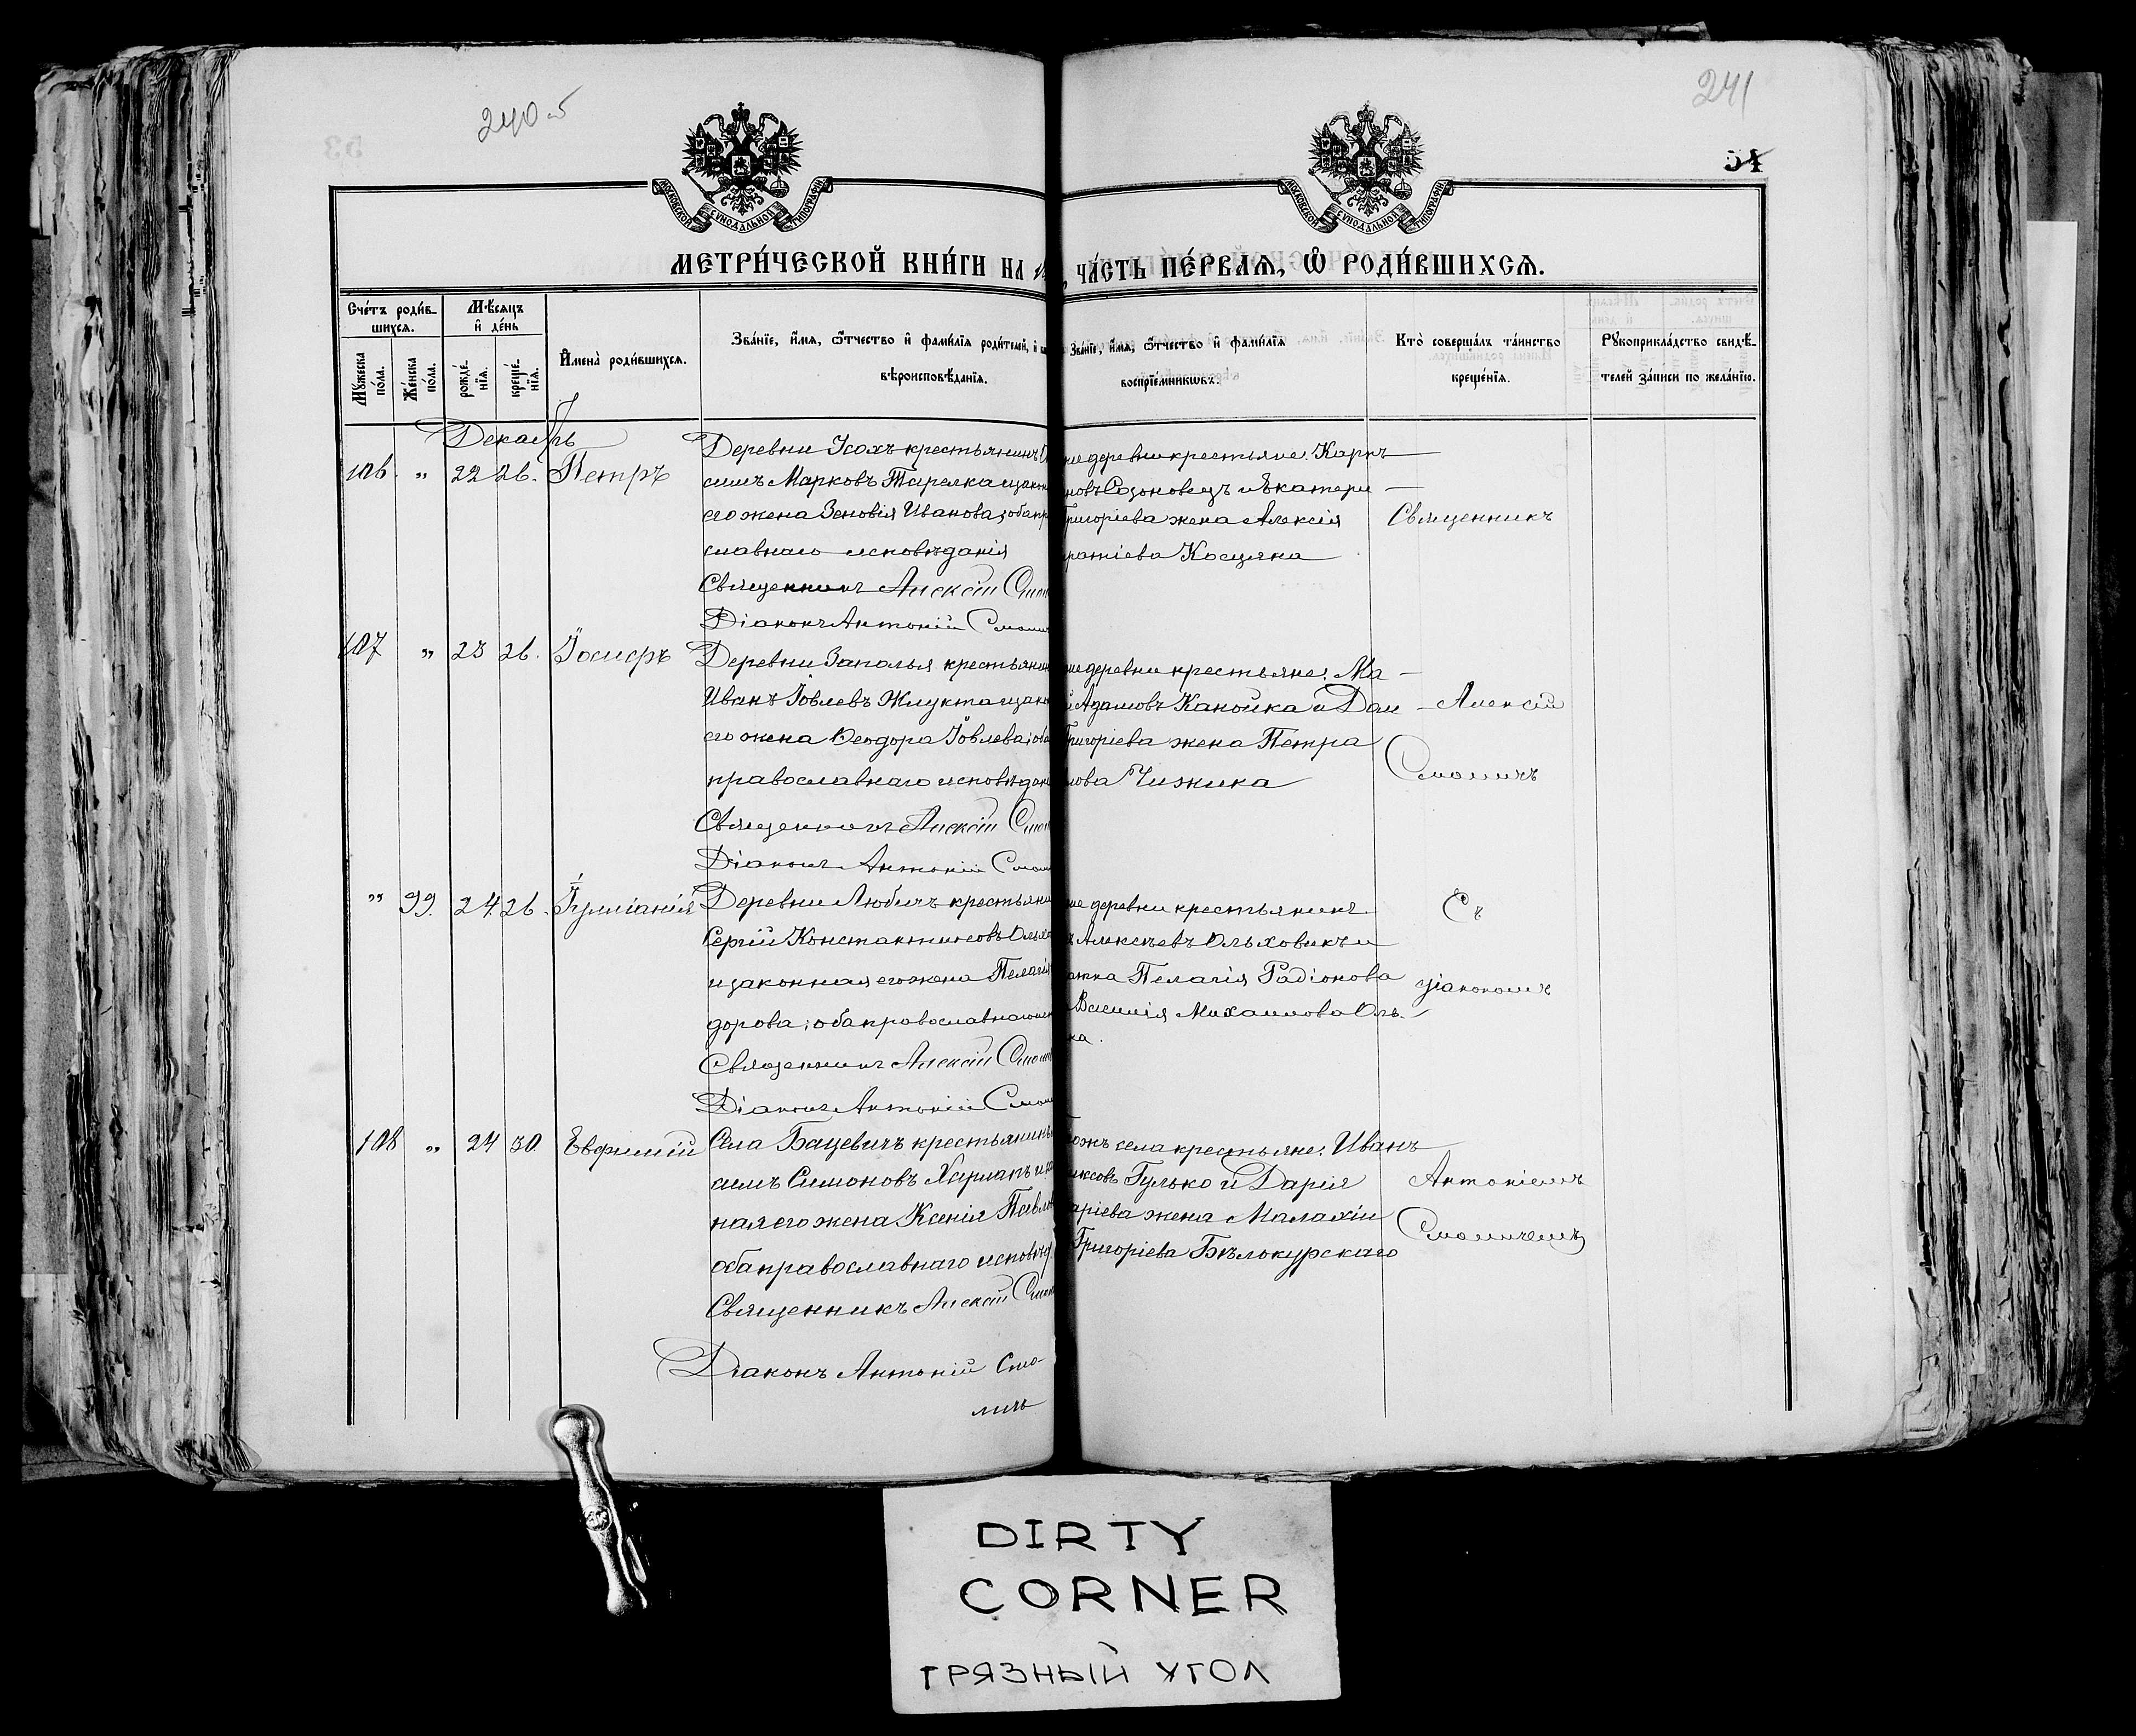 240 об
241
54
МОСКОВСКОЙ СѴНОДАЛЬНОЙ ТИПОГРАФІИ
МОСКОВСКОЙ СѴНОДАЛЬНОЙ ТИПОГРАФІИ
МЕТРИ́ЧЕСКОЙ КНИ́ГИ НА
ЧА́СТЬ ПЕ́РВАѦ, Ѽ РОДИ́ВШИХСѦ.
Сче́тъ роди́в-
шихсѧ.
Мꙋжеска по́ла.
Же́нска по́ла.
Мѣ́сѧцъ
и҆ де́нь
рожде́-нїѧ.
креще́-нїѧ.
И҆мена̀ роди́вшихсѧ.
Зва́нїе, и҆́мѧ, ѿ́тчество и҆ фами́лїѧ роди́телей, и҆
вѣроисповѣ́данїѧ.
Зва́нїе, и҆́мѧ, ѿ́тчество и҆ фами́лїѧ
воспрїе́мникѡвъ.
Кто̀ соверша́лъ та́инство
креще́нїѧ.
Рꙋкоприкла́дство свидѣ́-
телей за́писи по жела́нїю.
Декабрь
106. " 22 26. Петръ
Деревни Усохъ крестьянинъ
симъ Марковъ Тарелка и закон
его жена Зеновія Иванова; оба пр
славнаго исповѣданія
Священникъ Алексій Смол
Діаконъ Антоній Смолич
деревни крестьяне: Карпъ
новъ Созоновецъ и Екатери
Григоріева жена Алексія
Косцяна
Священникъ
107 " 23 26. Іосифъ
Деревни Заполья крестьянин
Иванъ Іовлевъ Жлукта и закон
его жена Ѳеодора Іовлева; оба
православнаго исповѣдан
Священникъ Алексій Смол
Діаконъ Антоній Смол
деревни крестьяне: Ма
Адамовъ Канойка и Дом
Григоріева жена Петра
Чижика
Алексій
Смоличъ
" 99. 24. 26. Іуліанія
Деревни Любичъ крестьяни
Сергій Константиновъ Ольхо
и законная его жена Пелагія
дорова; оба православнаго ис
Священникъ Алексій Смол
Діаконъ Антоній Смол
деревни крестьянинъ
Алексѣевъ Ольховикъ и
Пелагія Радіонова
Василія Михаилова Оль-
ка.
Съ
діакономъ
108 " 24 30 Евфимій
Села Бацевичъ крестьянинъ
симъ Симоновъ Харлапъ и за
ная его жена Ксенія Павлов
оба православнаго исповѣд
Священникъ Алексій Смол
Діаконъ Антоній Смо-
личъ
тожъ села крестьяне: Иванъ
Гулько и Дарія
жена Малахіи
Григоріева Бѣлокурскаго
Антоніемъ
Смоличемъ
DIRTY
CORNER
ГРЯЗНЫЙ УГОЛ